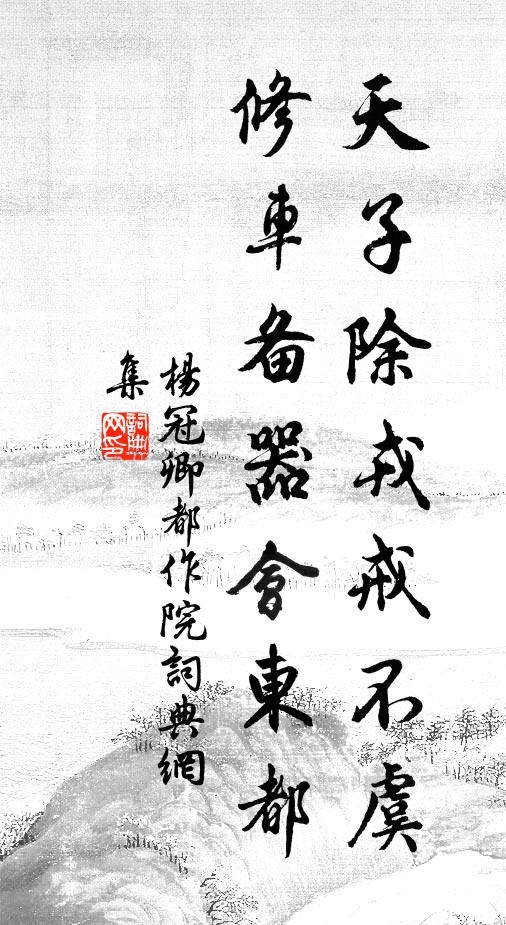 天子除戎戒不虞
修車备器會東都
楊冠卿都作院詞典網
集
詞典網印